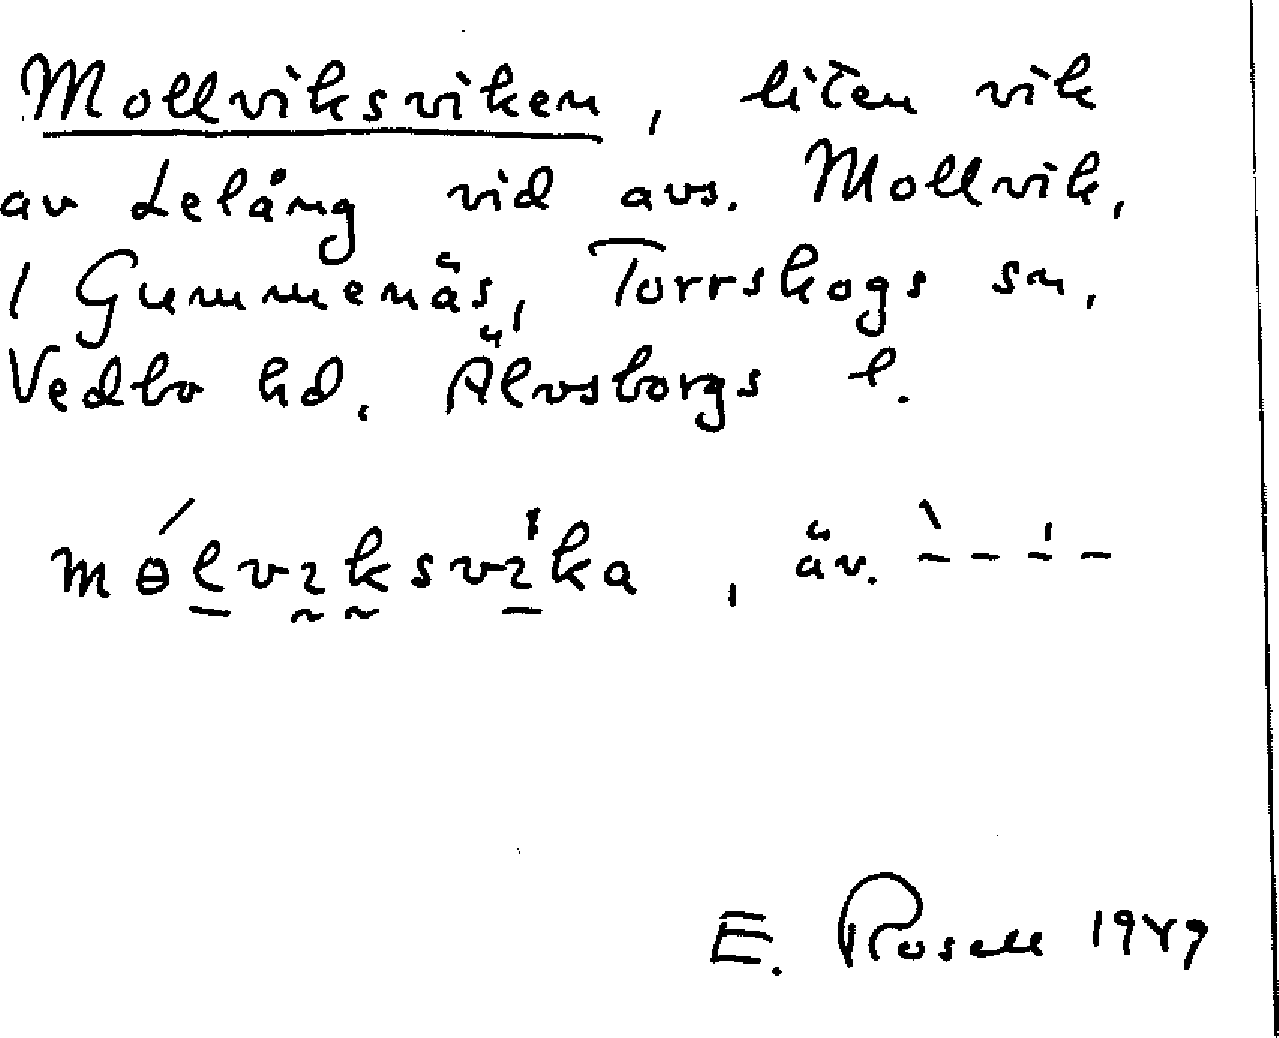 Mollviksviken, liten vik
av Lelång vid avs. Mollvik,
1 Gummenäs, Torrskogs sn,
Vedbo hd, Älvsborgs l.
mɵ́lvɪksvɪ̍ka, äv. ˋ‒ ‒ ˈ‒ ‒
E. Rosell 1949